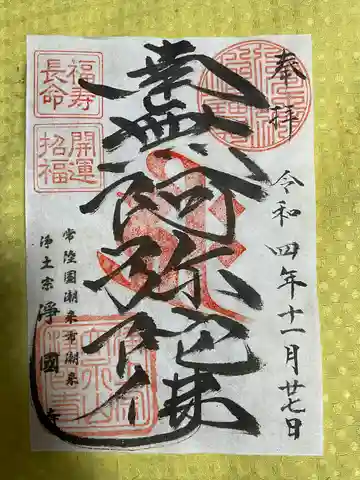 奉拝
令和四年十一月廿七日
南無阿弥陀佛
福寿
長命
開運
招福
常陸國潮来市潮来
浄土宗 淨國寺